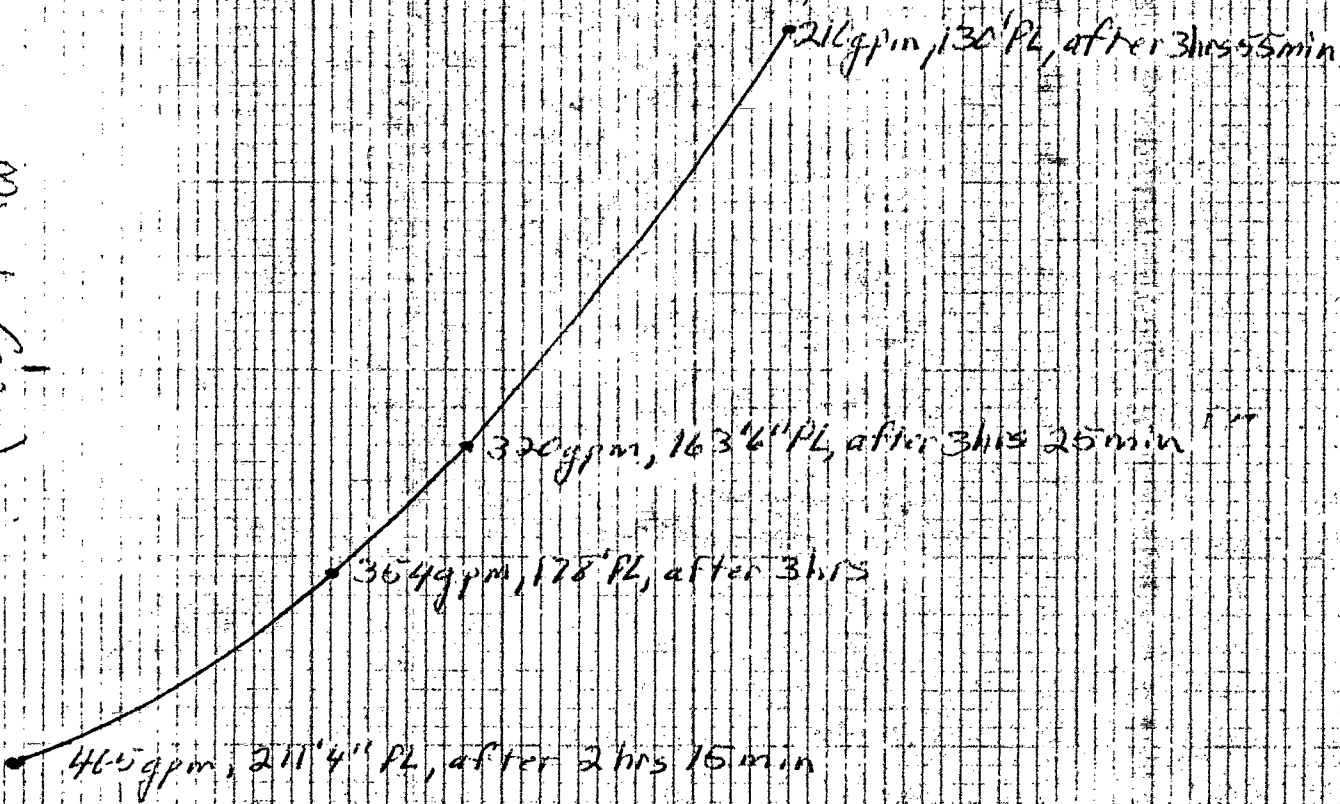 gpm, 130' PL, after 3hrs 55min
320gpm, 163'6" PL, after 3hrs 25min
354gpm, 178' PL, after 3hrs
gpm, 211'4" PL, after 2 hrs 15min